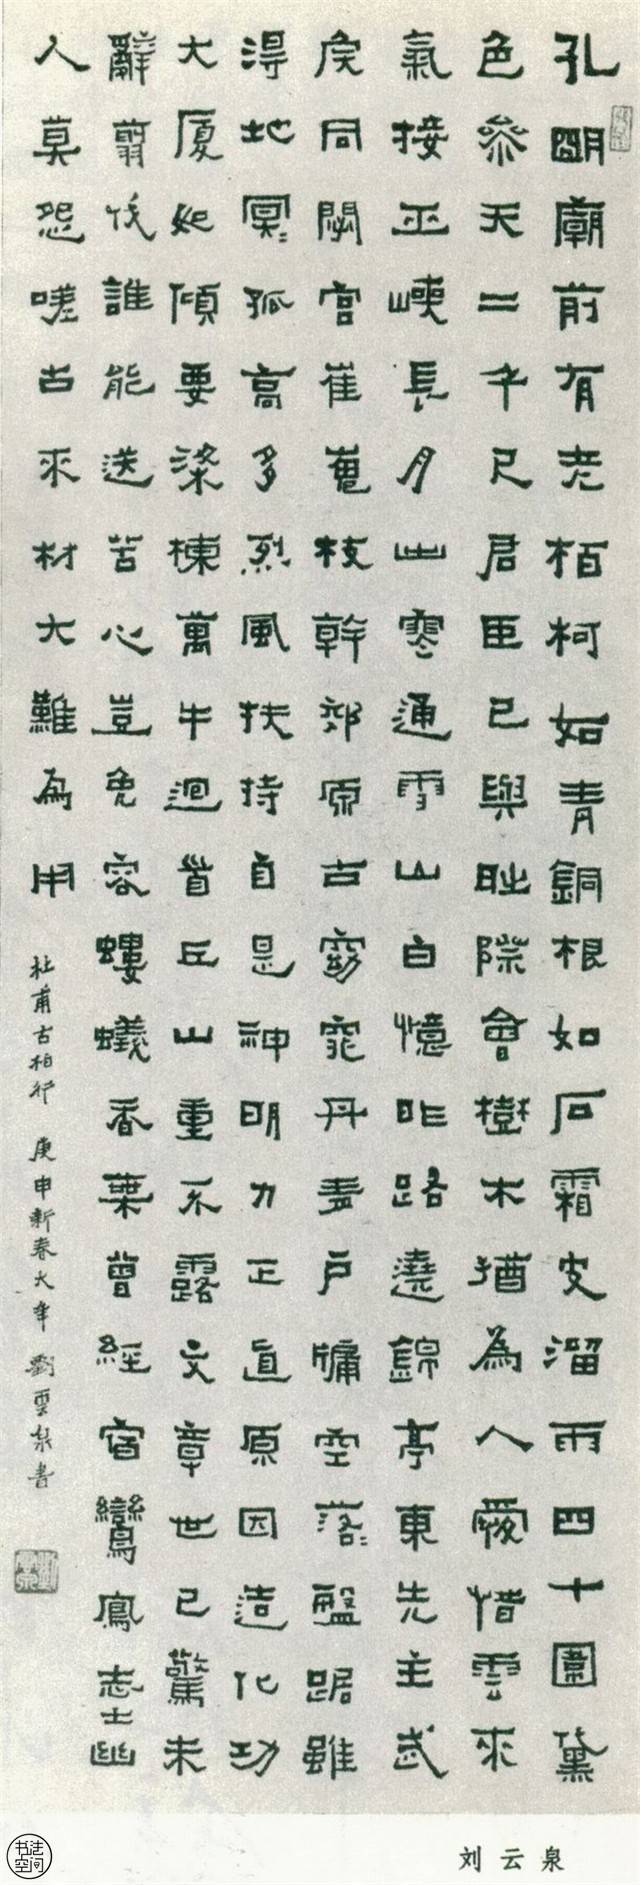 孔明廟前有老柏柯如青銅根如石霜皮溜雨四十圍黛
色參天二千尺君臣已與時際會樹木猶為人愛惜雲來
氣接巫峽長月出寒通雪山白憶昨路遶錦亭東先主武
侯同閟宮崔嵬枝幹郊原古窈窕丹青戶牖空落〻盤踞雖
得地冥〻孤高多烈風扶持自是神明力正直原因造化功
大廈如傾要梁棟萬牛迴首丘山重不露文章世已驚未
辭翦伐誰能送苦心豈免容螻蟻香葉曾經宿鸞鳳志士幽
人莫怨嗟古來材大難為用
杜甫古柏行 庚申新春大年 劉雲泉書
刘云泉
书法空间